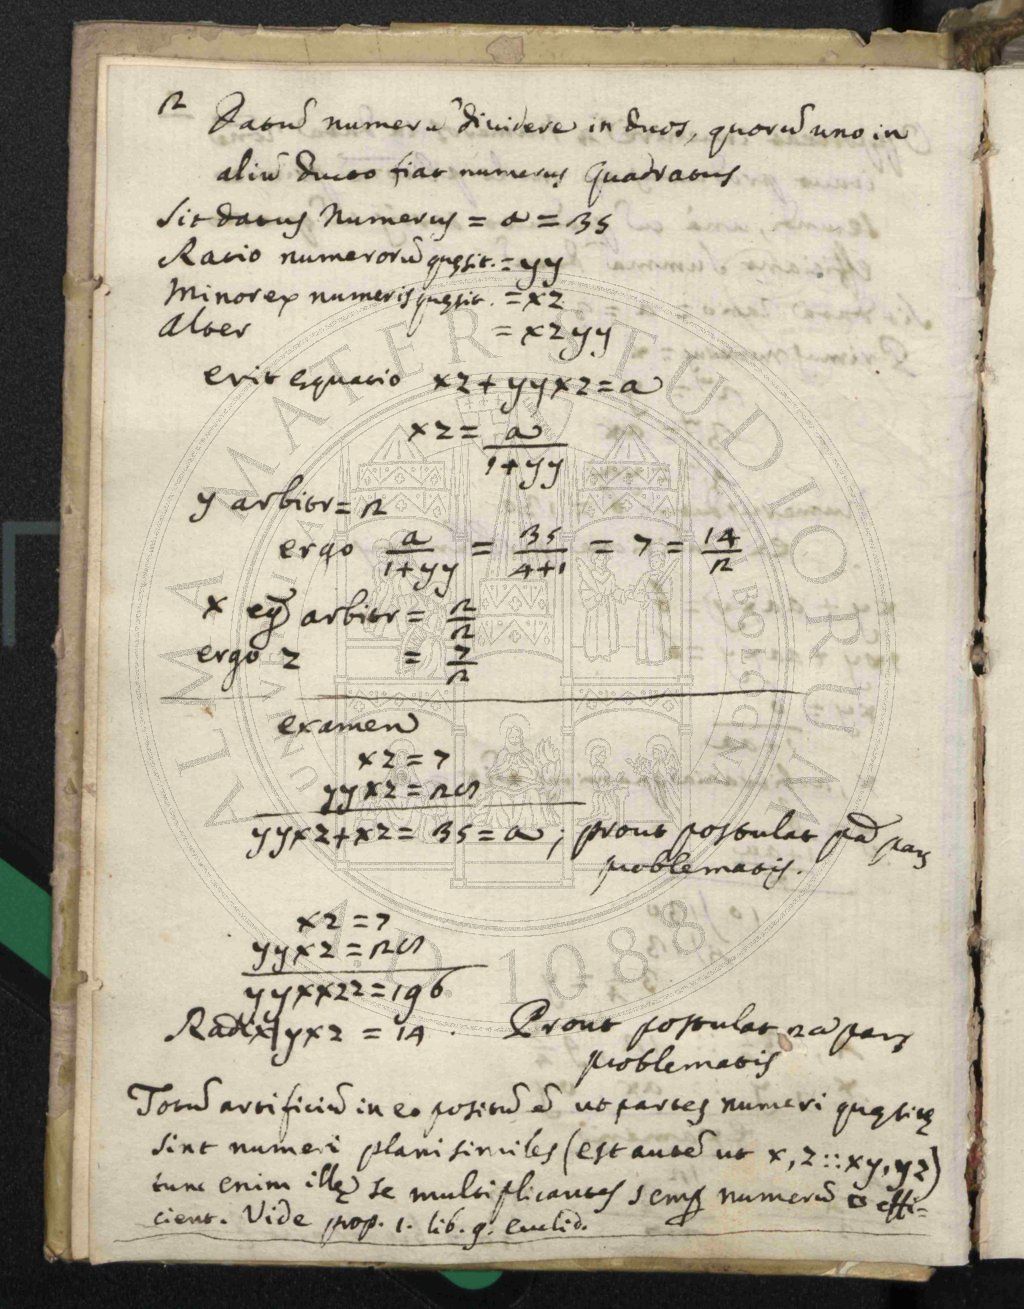 2
Datū numerū dividere in duos, quorū uno in
aliū ducto fiat numerus Quadratus
Sit datus Numerus = a = 35
Ratio numerorū quęsit. = yy
Minor ex numeris quęsit. = xz
Alter = xzyy
erit equatio xz + yyxz = a
xz = a/1+yy
y arbitr = 2
ergo a/1+yy = 35/4+1 = 7 = 14/2
x arbitr = 2/2
ergo z = 7/2
examen
xz = 7
yyxz = 28
yyxz + xz = 35 = a; prout postulat pa pars
problematis.
xz = 7
yyxz = 28
yyxxzz = 196
Radix yxz = 14. Prout postulat 2a pars
problematis
Totū artificiū in eo positū ē ut partes numeri quęsitę
sint numeri plani similes (est autē ut x, z :: xy, yz)
tunc enim illę se multiplicantes semp numerū □ effi=
cient. Vide prop. 1. lib. 9. euclid.
ALMA MATER STUDIORUM
A.D. 1088